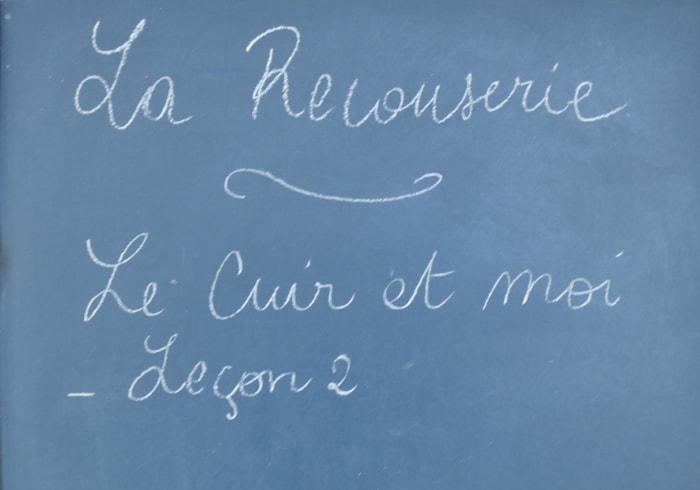 La Recouserie
Le Cuir et moi
- Leçon 2